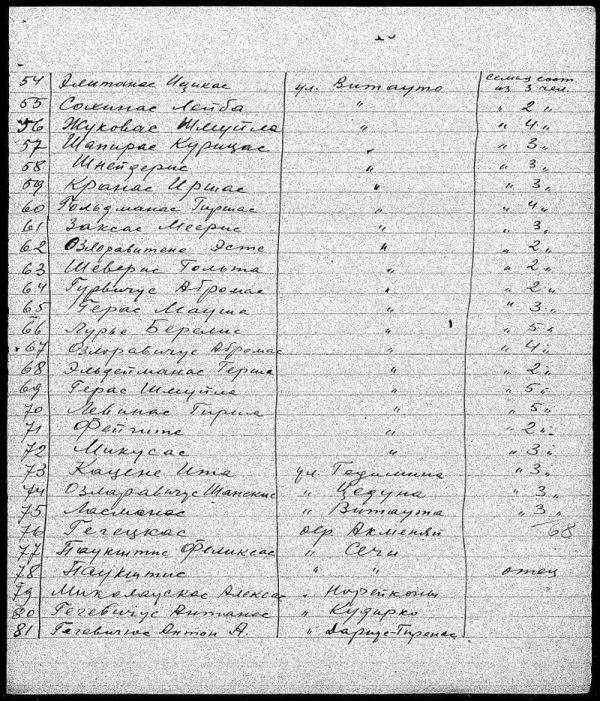 54 Элитанас Ицикас ул. Витауто семья сост. из 3 чел.
55 Сохинас Лейба " " 2 "
56 Жуковас Шмуйла " " 4 "
57 Шапирас Курицас " " 3 "
58 Шнейдерис " " 3 "
59 Кранас Иршас " " 3 "
60 Гольдманас Гиршас " " 4 "
61 Заксас Меерис " " 3 "
62 Озлоравитене Эсте " " 2 "
63 Шеверис Гольта " " 2 "
64 Гурвичус Абромас " " 2 "
65 Герас Мауша " " 3 "
66 Лурье Берелис " " 5 "
67 Озлоравичус Абромас " " 4 "
68 Эльдейманас Герша " " 2 "
69 Герас Шмуйла " " 5 "
70 Левинас Гирша " " 5 "
71 Фейгите " " 2 "
72 Микусас " " 3 "
73 Кацене Ита ул. Гедимина " 3 "
74 Озларавичус Шапскис " Цедуна " 3 "
75 Ласманас " Витаута " 3 "
76 Гечецкас дер. Акменяй 68
77 Паукштис Феликсас " Сечи
78 Паукштис " " отец
79 Миколаускас Алексас " Норейконы
80 Гегевичус Антанас " Кудирко
81 Гегевичюс Антон А. " Дариус-Гиренас